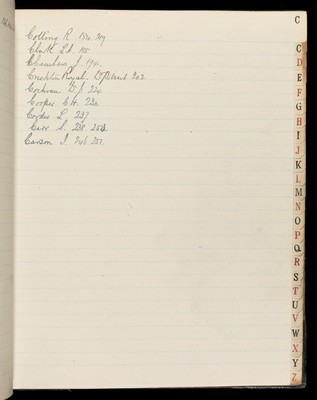 C
Collins R 150. 209
Clark Ld. 155
Chambers J. 174.
Crichton Royal. Dumfries 202
Cochran D. J. 224.
Cooper C. H. 230
L. 237
Carr S. 238. 253.
Carson J. 246. 257.
C
D
E
F
G
H
I
J
K
L
M
N
O
P
Q
R
S
T
U
V
W
X
Y
Z